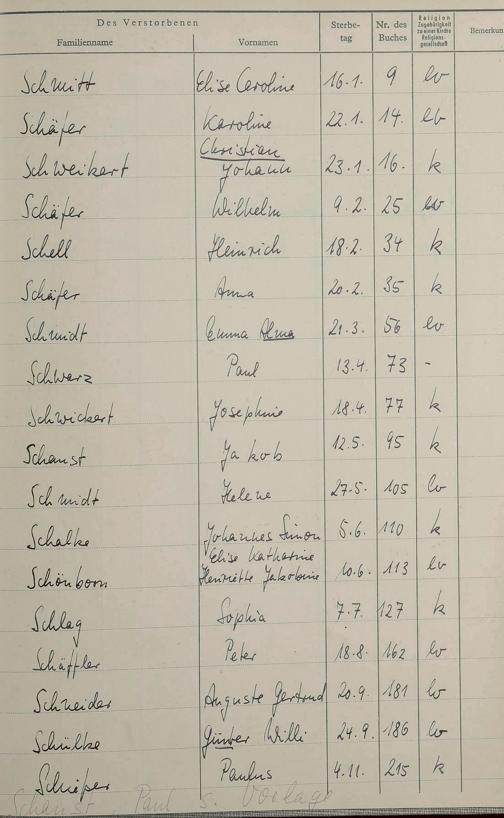 Des Verstorbenen
Familienname Vornamen Sterbe-tag Nr. des Buches Religion Zugehörigkeit zu einer Kirche Religions-gesellschaft Bemerkun
Schmitt Elise Caroline 16.1. 9 ev
Schäfer Karoline 22.1. 14. ev
Christian
Schweikert Johann 23.1. 16. k
Schäfer Wilhelm 9.2. 25 ev
Schell Heinrich 18.2. 34 k
Schäfer Anna 20.2. 35 k
Schmidt Emma Alma 21.3. 56 ev
Schwarz Paul 13.4. 73 -
Schwickert Josephine 18.4. 77 k
Schanst Jakob 12.5. 95 k
Schmidt Helene 27.5. 105 ev
Schalke Johannes Simon 5.6. 110 k
Elise Katharine
Schönborn Henriette Jakobine 10.6. 113 ev
Schlag Sophia 7.7. 127 k
Schäffler Peter 18.8. 162 ev
Schneider Auguste Gertrud 20.9. 181 ev
Schülke Günter Willi 24.9. 186 ev
Schäfer Paulus 4.11. 215 k
Schanst Paul s. Vorlage